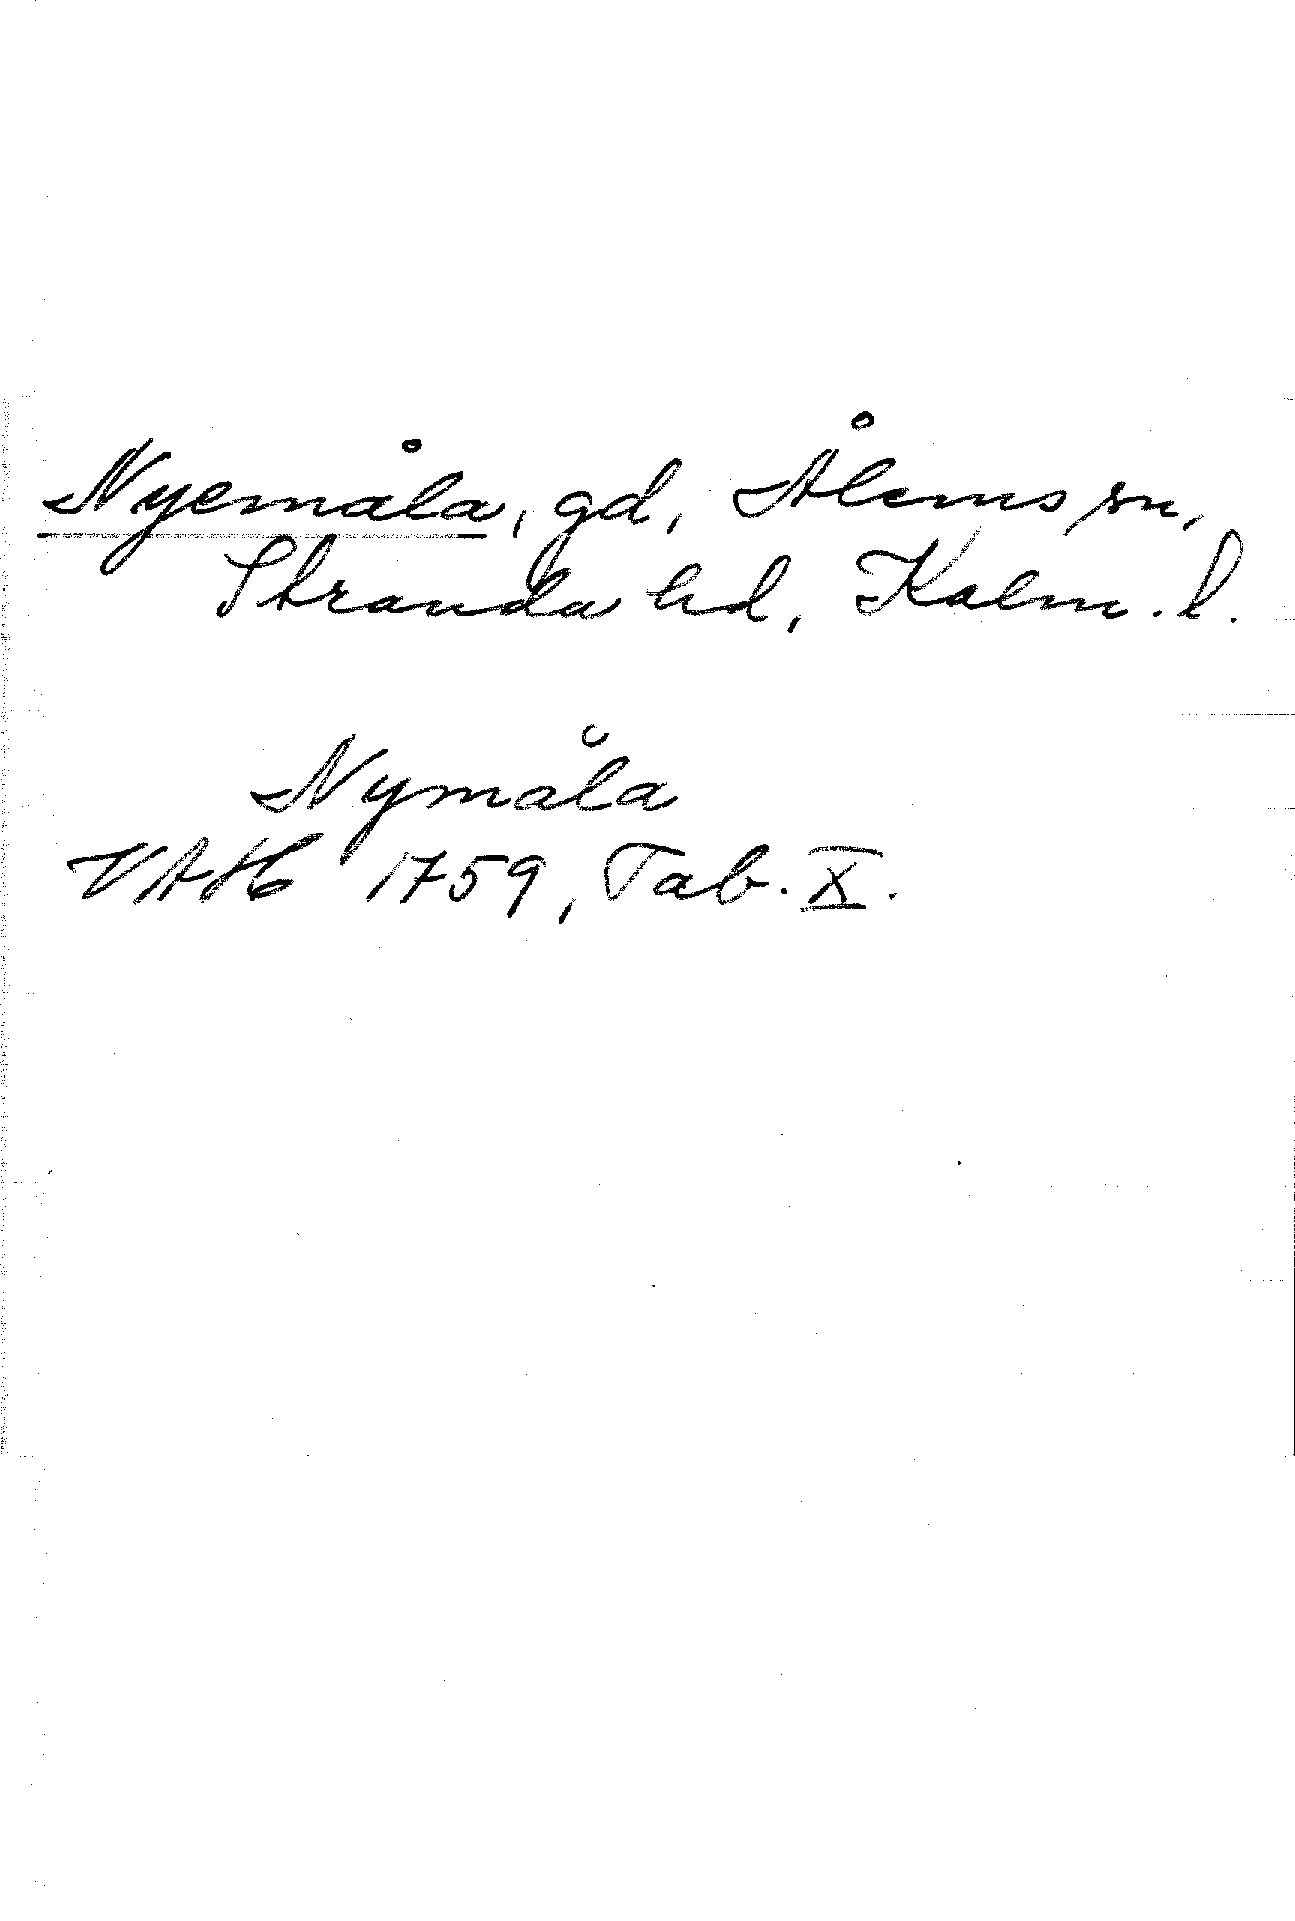 Nyemåla, gd, Ålems sn,
Stranda hd, Kalm. l.
Nymåla
VAH 1759, Tab. X.